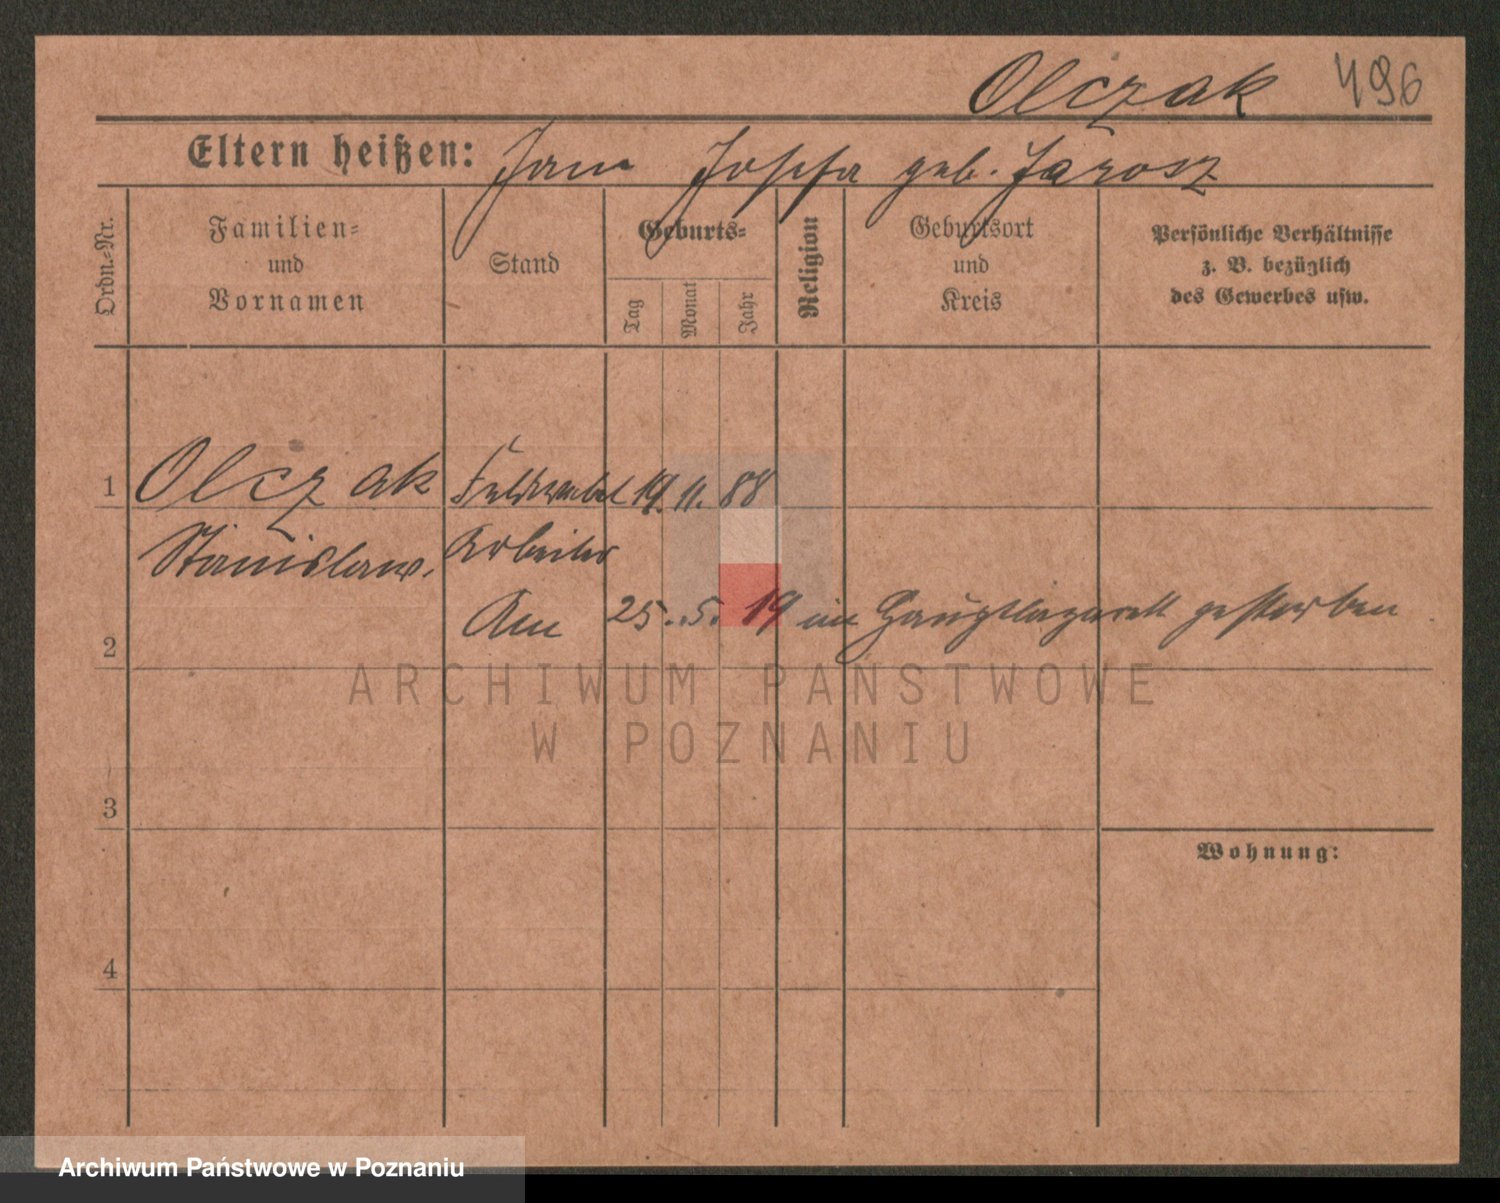 Olczak 496
Eltern heißen: Jan Josefa geb. Jarosz
Ordn.-Nr.
Familien-
und
Vornamen
Stand
Geburts-
Tag
Monat
Jahr
Religion
Geburtsort
und
Kreis
Persönliche Verhältnisse
z. B. bezüglich
des Gewerbes usw.
1 Olczak Feldwebel 19. 11. 88
Stanislaw. Arbeiter
Am 25. 5. 19 im Hauptlazarett gestorben
2
ARCHIWUM PAŃSTWOWE
W POZNANIU
3
Wohnung:
4
Archiwum Państwowe w Poznaniu